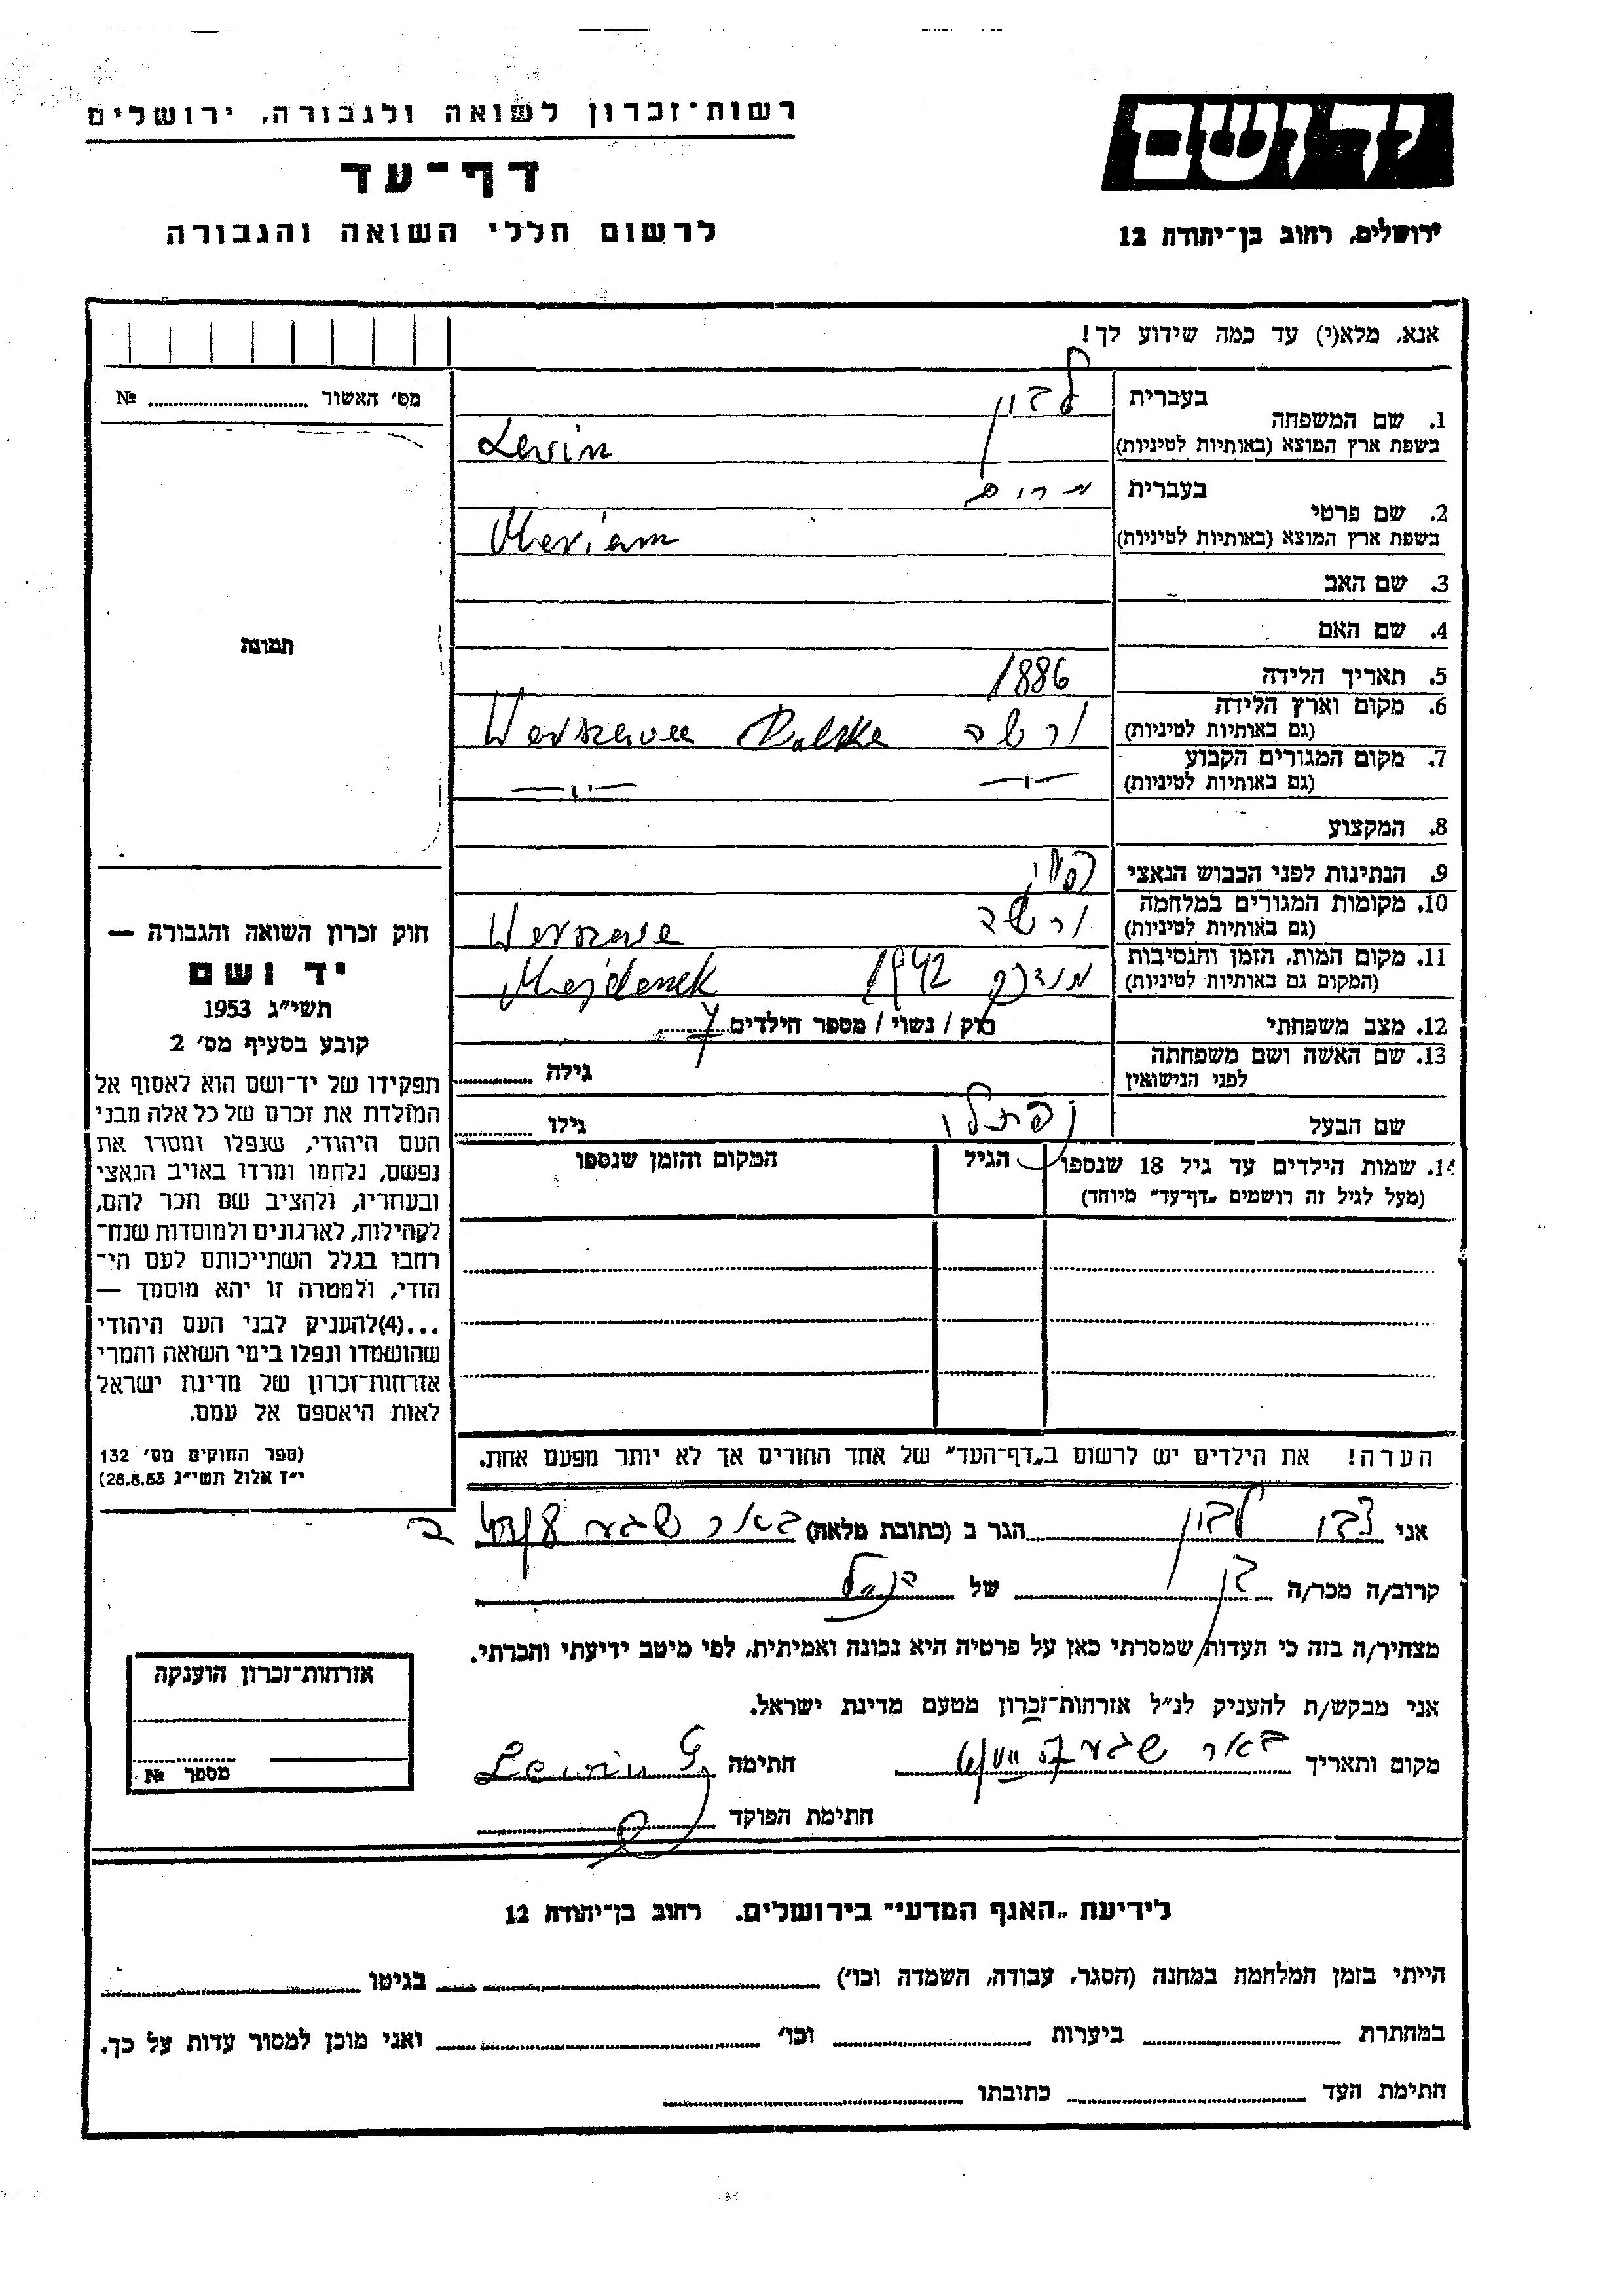 רשות־זכרון לשואה ולגבורה, ירושלים
דף־עד
לרשום חללי השואה והגבורה
יד ושם
ירושלים, רחוב בן־יהודה 12
אנא, מלא(י) עד כמה שידוע לך!
מס׳ האשור № 
1. שם המשפחה
בעברית
בשפת ארץ המוצא (באותיות לטיניות)
Lewin
2. שם פרטי
בעברית מרים
בשפת ארץ המוצא (באותיות לטיניות)
Meriam
3. שם האב
4. שם האם
5. תאריך הלידה 1886
6. מקום וארץ הלידה
(גם באותיות לטיניות)
ורשה Polska
7. מקום המגורים הקבוע
(גם באותיות לטיניות)
—״— —״—
8. המקצוע
9. הנתינות לפני הכבוש הנאצי
10. מקומות המגורים במלחמה
(גם באותיות לטיניות)
ורשה
11. מקום המות, הזמן והנסיבות
(המקום גם באותיות לטיניות)
1942 Majdanek
12. מצב משפחתי רוק / נשוי / מספר הילדים
13. שם האשה ושם משפחתה
לפני הנישואין
גילה
שם הבעל נפתלי
גילו
14. שמות הילדים עד גיל 18 שנספו
(מעל לגיל זה רושמים „דף־עד״ מיוחד)
הגיל
המקום והזמן שנספו
הערה! את הילדים יש לרשום ב„דף־העד״ של אחד ההורים אך לא יותר מפעם אחת.
תמונה
חוק זכרון השואה והגבורה —
יד ושם
תשי״ג 1953
קובע בסעיף מס׳ 2
תפקידו של יד־ושם הוא לאסוף אל
המולדת את זכרם של כל אלה מבני
העם היהודי, שנפלו ומסרו את
נפשם, נלחמו ומרדו באויב הנאצי
ובעוזריו, ולהציב שם וזכר להם,
לקהילות, לארגונים ולמוסדות שנח־
רבו בגלל השתייכותם לעם הי־
הודי, ולמטרה זו יהא מוסמך —
...(4)להעניק לבני העם היהודי
שהושמדו ונפלו בימי השואה והמרי
אזרחות־זכרון של מדינת ישראל
לאות היאספם אל עמם.
(ספר החוקים מס׳ 132
י״ז אלול תשי״ג 28.8.53)
אני הגר ב (כתובת מלאה) באר שבע
קרוב/ה מכר/ה בן של הנ״ל
מצהיר/ה בזה כי העדות שמסרתי כאן על פרטיה היא נכונה ואמיתית, לפי מיטב ידיעתי והכרתי.
אני מבקש/ת להעניק לנ״ל אזרחות־זכרון מטעם מדינת ישראל.
מקום ותאריך באר שבע
חתימה Lewin G.
חתימת הפוקד
אזרחות־זכרון הוענקה
מספר №
לידיעת „האגף המדעי״ בירושלים. רחוב בן־יהודה 12
הייתי בזמן המלחמה במחנה (הסגר, עבודה, השמדה וכו׳) בגיטו
במחתרת ביערות וכו׳ ואני מוכן למסור עדות על כך.
חתימת העד כתובתו